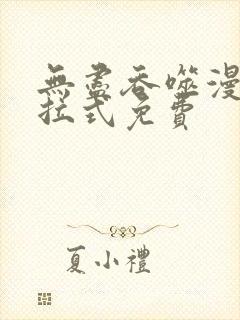 無盡吞噬漫
拉式免費
夏小禮